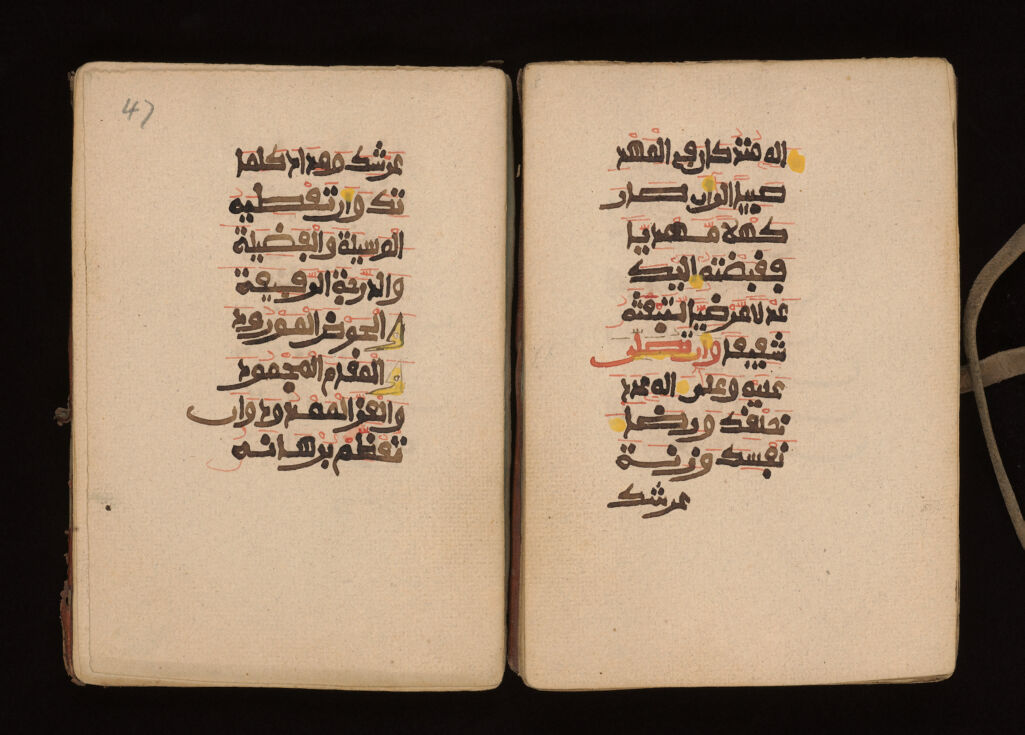 اله منذ كان في المهد
صبيا الى ان صار
كهلا مهديا
فقبضته اليك
عدلا مرضيا لتبعثه
شفيعا وان تصلي
عليه وعلى اله عدد
خلقك ورضا
نفسك وزنة
عرشك
47
عرشك ومداد كلما
تك وان تعطيه
الوسيلة والفضيلة
والدرجة الرفيعة
والحوض المورود
والمقام المحمود
والعز الممدود وان
تعظم برهانه